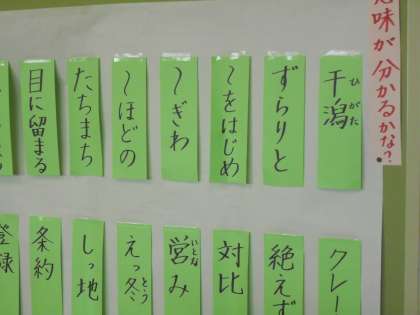 意味が分かるかな？
干潟
ひがた
ずらりと
～をはじめ
～ぎわ
～ほどの
たちまち
目に留まる
クレー
絶えず
対比
営み
いとな
えっ冬
とう
しっ地
条約
登録